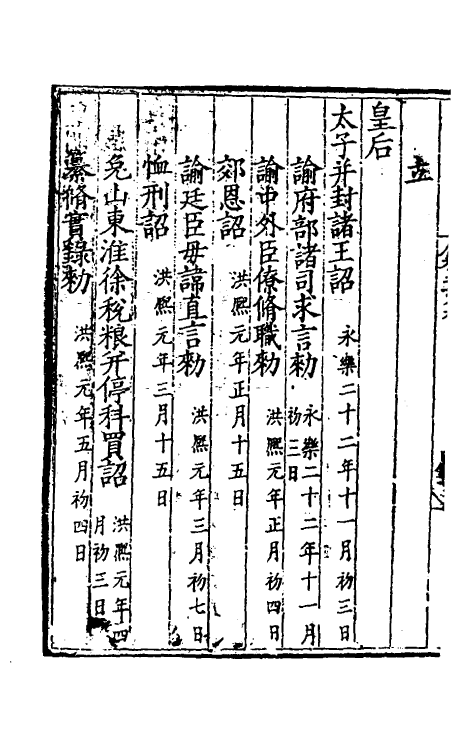 立
皇后
太子并封諸王詔 永樂二十二年十一月初三日
諭府部諸司求言勑 永樂二十二年十一月初三日
諭中外臣僚脩職勑 洪熙元年正月初四日
郊恩詔 洪熙元年正月十五日
諭廷臣毋諱直言勑 洪熙元年三月初七日
恤刑詔 洪熙元年三月十五日
免山東淮徐稅粮并停科買詔 洪熙元年四月初三日
纂脩實錄勑 洪熙元年五月初四日